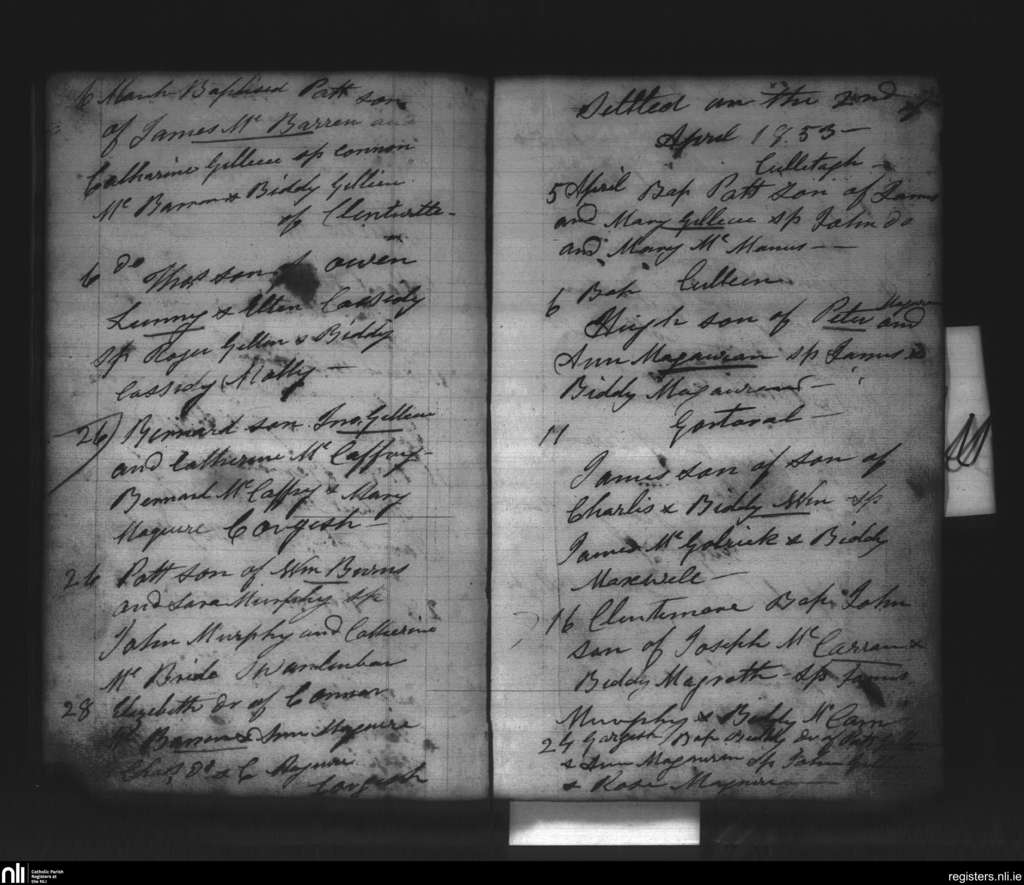 6 March Baptised Patt son
of James Mc Barren and
Catharine Gilleece sp Connor
Mc Barron & Biddy Gilleen
of
6 do Thos son of Owen
Lunny & Ellen Cassidy
sp Roger Gillen & Biddy
Cassidy
26 Bernard son Jno. Gilleece
and Catherine Mc Caffrey
Bernard Mc Caffry & Mary
Maguire Corgesh
26 Patt son of Wm Burns
and Sara Murphy sp
John Murphy and Catherine
Mc Bride Swanlinbar
28 Elizabeth dr of Connor
Mc Barron & Ann Maguire
Chas do & C Maguire
Corgesh
Settled on the 2nd of
April 1853
Culletagh
5 April Bap Patt son of James
and Mary Gilleece sp John do
and Mary Mc Manus
Culleen
6 Bap
Hugh son of Peter and
Ann Magawran sp James &
Biddy Magauran
Gortoral
11
James son of son of
Charlis & Biddy sp
James Mc Golrick & Biddy
Maxwell
16 Bap John
son of Joseph Mc Carran &
Biddy Magrath sp James
Murphy & Biddy Mc
24 Gorgesh Bap Biddy dr of Patt
& Ann Magauran sp John
& Rose Maguire
nli
Catholic Parish
Registers at
the NLI
registers.nli.ie